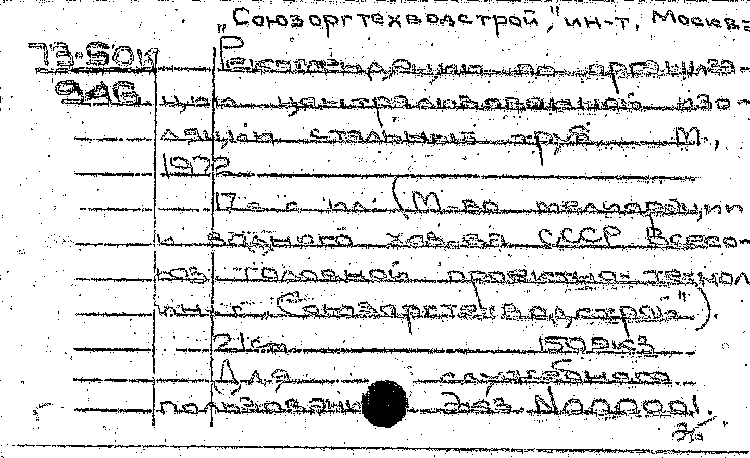 „Союзоргтехводстрой," ин-т, Москва
73-50к Рекомендации по организа-
946 ции централизованной изо-
ляции стальных труб М.,
1972
17 с. с ил. (М-во мелиорации
и водного хоз-ва СССР Всесо-
юз. головной проектно-технол
ин-т „Союзоргтехводстрой").
21 см 150 экз
Для служебного
пользования Экз. N000001.